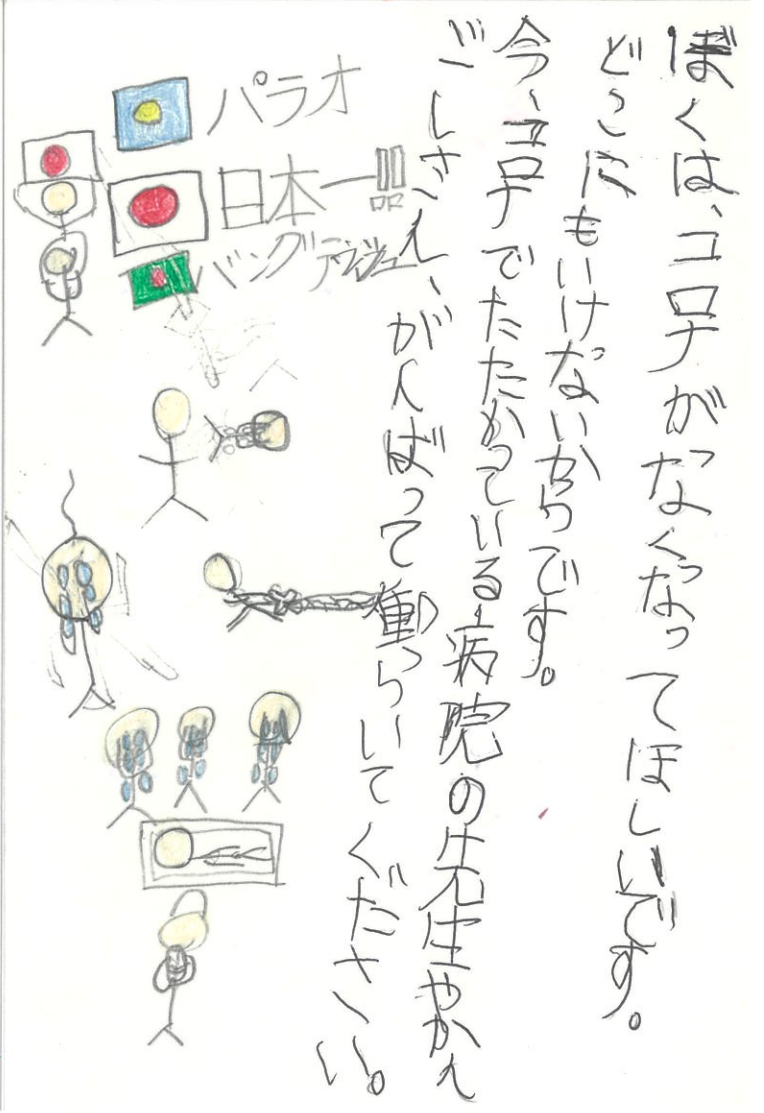 ぼくは、コロナがなくなってほしいです。
どこにもいけないからです。
今、コロナでたたかっている病院の先生やかん
ごしさん、がんばって働らいてください。
パラオ
日本一
バングラデシュ